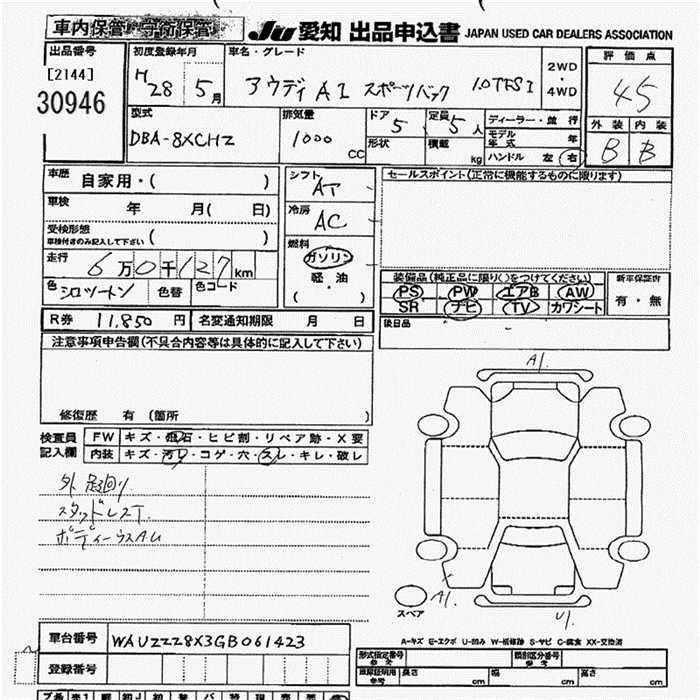 車内保管 守衛保管 JU 愛知 出品申込書 JAPAN USED CAR DEALERS ASSOCIATION
出品番号
[2144]
30946
初度登録年月
H28 5月
車名・グレード
アウディ A1 スポーツバック 1.0TFSI
2WD
・
4WD
評価点
45
外装 内装
B B
型式
DBA-8XCHZ
排気量
1000 CC
ドア
5
形状
定員
5人
積載
kg
ディーラー・並行
モデル年式 年
ハンドル 左 右
車歴
自家用・( )
車検 年 月( 日)
受検形態
車検付きのみ記入して下さい ( )
走行 6万0千127km
色 シロツートン 色替 色コード
シフト
AT
冷房
AC
燃料
ガソリン
軽・油
( )
セールスポイント(正常に機能するものに限ります)
装備品(純正品に限り○をつけてください)
PS PW エアB AW
SR ナビ TV カワシート
新車保証書
有・無
R券 11,850円 名変通知期限 月 日
後日品
注意事項申告欄(不具合内容等は具体的に記入して下さい)
修復歴 有 (箇所 )
検査員
記入欄
FW キズ・飛石・ヒビ割・リペア跡・X要
内装 キズ・汚レ・コゲ・穴・スレ・キレ・破レ
外 足廻り
スタッドレスT.
ボディーウスAU
A1.
A1.
U1.
スペア
A-キズ E-エクボ U-凹み W-補修跡 S-サビ C-腐食 XX-交換済
車台番号 WAUZZZ8X3GB061423
登録番号
形式指定番号
参考
類別区分番号
参考
長さ cm 幅 cm 高さ cm